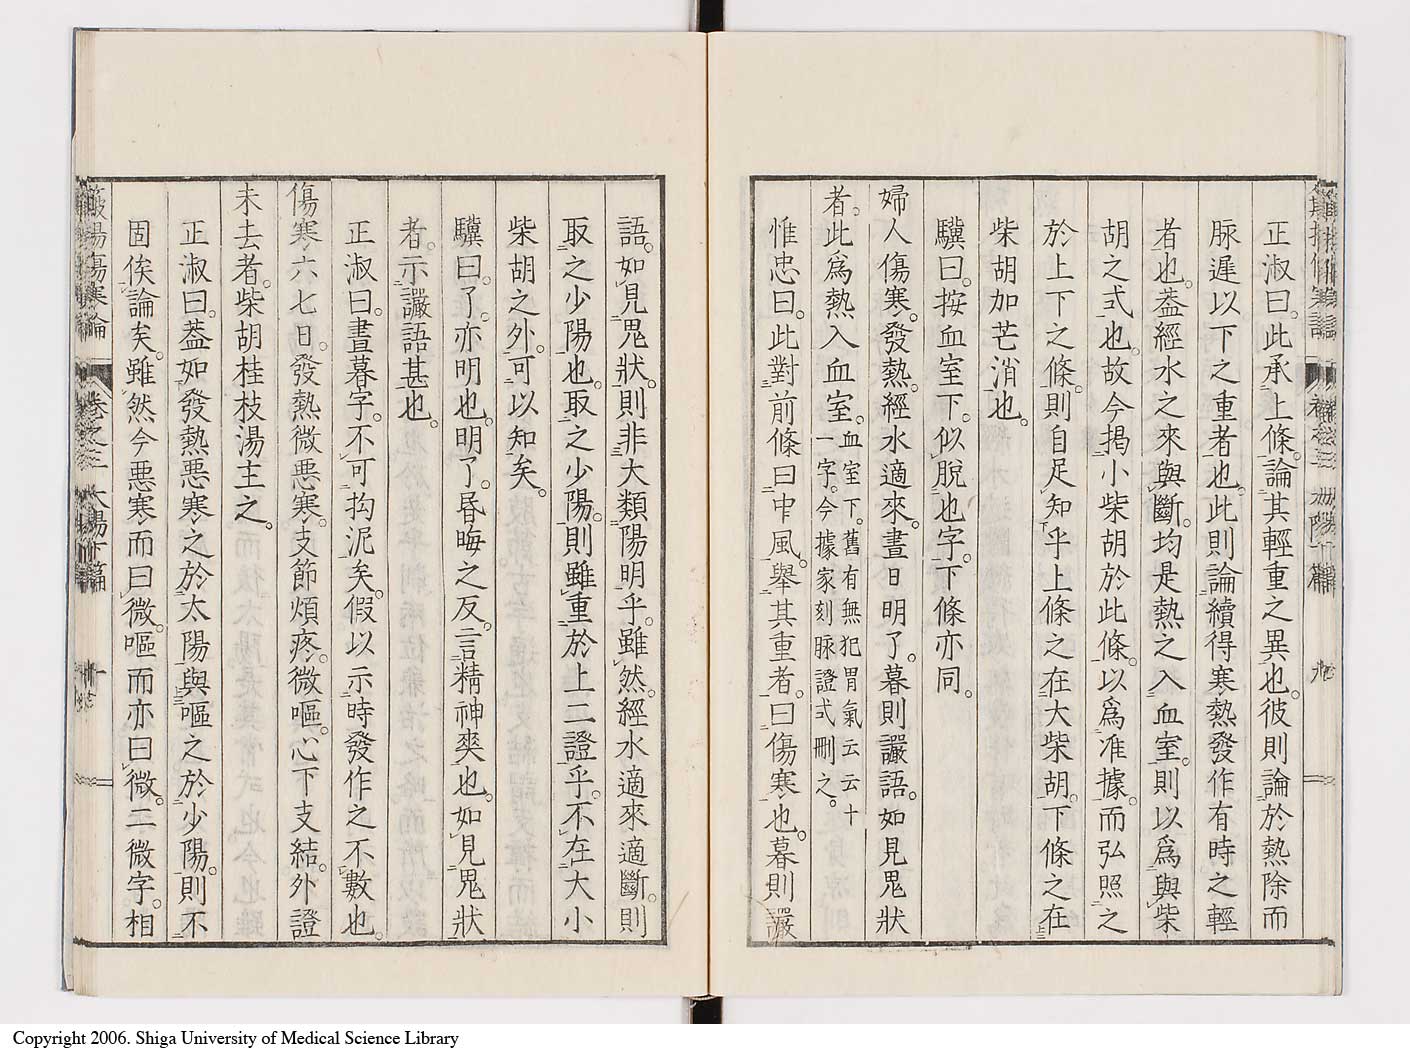 正淑曰。此承上條。論其輕重之異也。彼則論於熱除而
脉遲以下之重者也。此則論續得寒熱發作有時之輕
者也。葢經水之來與斷。均是熱之入血室。則以爲與柴
胡之式也。故今揭小柴胡於此條。以爲准據。而弘照之
於上下之條。則自足知乎上條之在大柴胡。下條之在
柴胡加芒消也。
驥曰。按血室下。似脫也字。下條亦同。
婦人傷寒。發熱。經水適來。晝日明了。暮則讝語。如見鬼狀
者。此爲熱入血室。血室下。舊有無犯胃氣云云十
一字。今據家刻脉證式刪之。
惟忠曰。此對前條曰中風。擧其重者。曰傷寒也。暮則讝
語。如見鬼狀。則非大類陽明乎。雖然。經水適來適斷。則
取之少陽也。取之少陽。則雖重於上二證乎。不在大小
柴胡之外。可以知矣。
驥曰。了。亦明也。明了。昏晦之反。言精神爽也。如見鬼狀
者。示讝語甚也。
正淑曰。晝暮字。不可拘泥矣。假以示時發作之不數也。
傷寒六七日。發熱微悪寒。支節煩疼。微嘔。心下支結。外證
未去者。柴胡桂枝湯主之。
正淑曰。葢如發熱悪寒之於太陽。與嘔之於少陽。則不
固俟論矣。雖然今悪寒而曰微。嘔而亦曰微。二微字。相
傷寒論
卷之三 太陽下篇
十
九
Copyright 2006. Shiga University of Medical Science Library